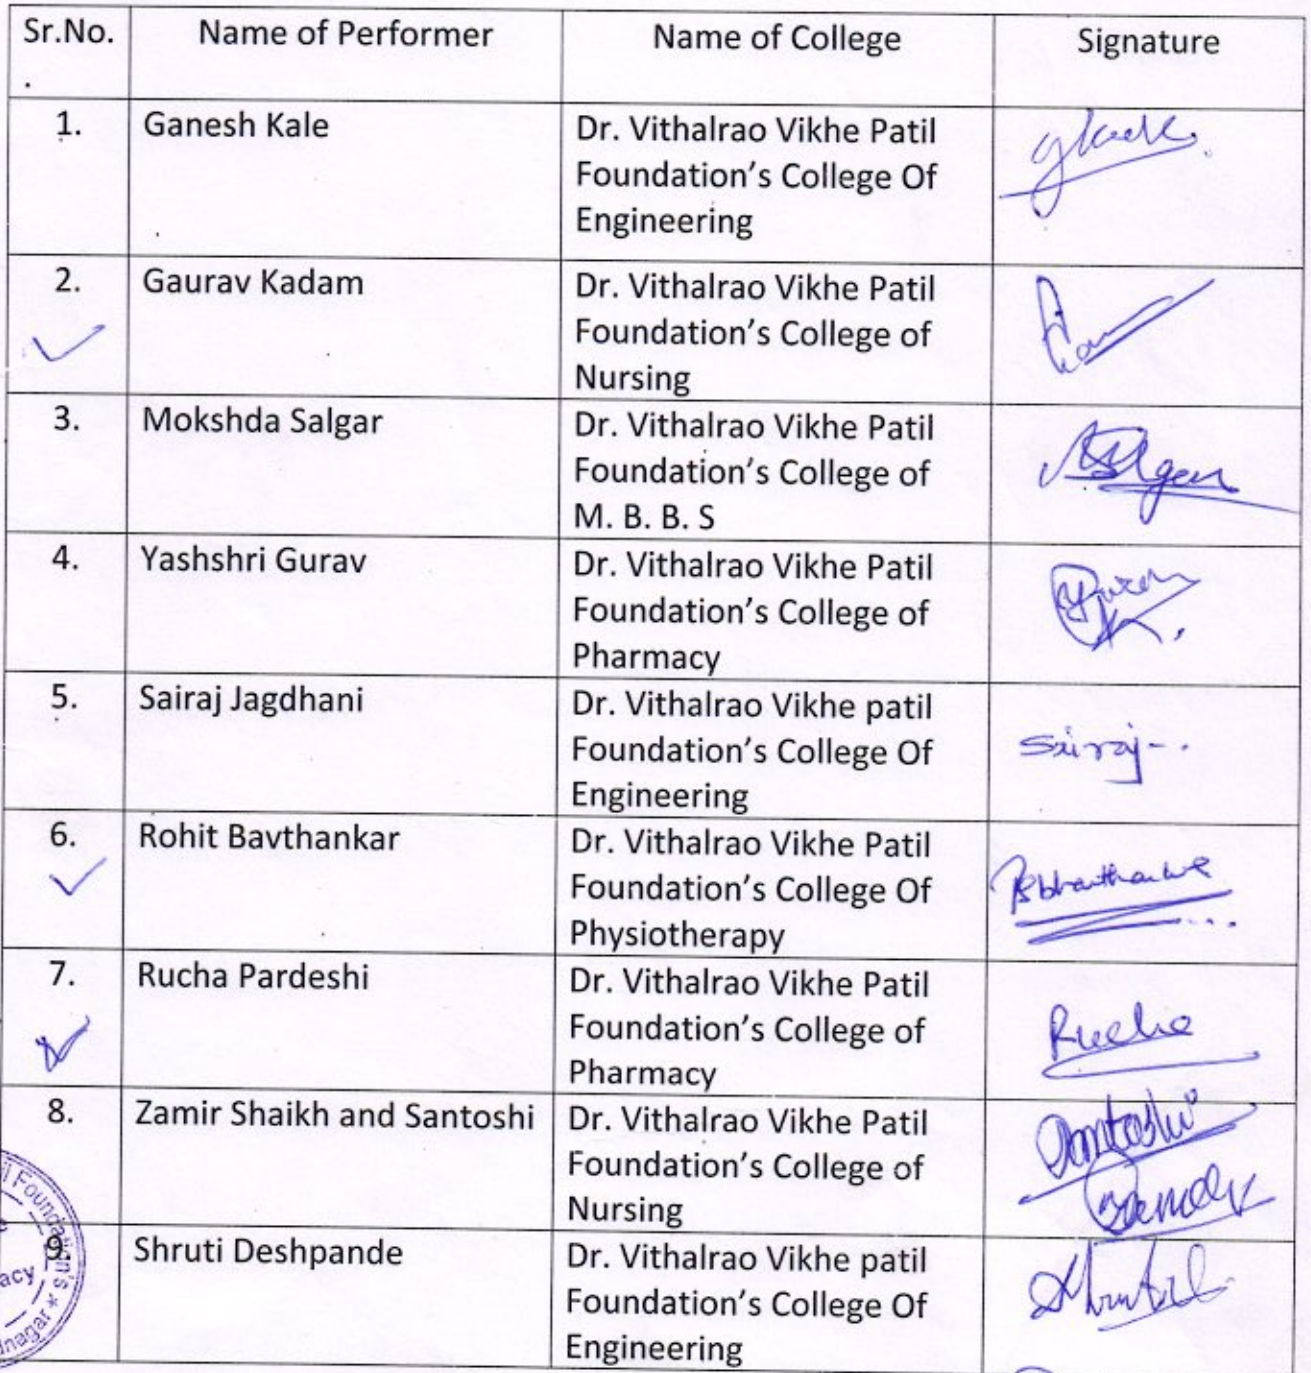 Sr.No. Name of Performer Name of College Signature
.
1. Ganesh Kale Dr. Vithalrao Vikhe Patil
Foundation's College Of
Engineering
2. Gaurav Kadam Dr. Vithalrao Vikhe Patil
Foundation's College of
Nursing
3. Mokshda Salgar Dr. Vithalrao Vikhe Patil
Foundation's College of
M. B. B. S
4. Yashshri Gurav Dr. Vithalrao Vikhe Patil
Foundation's College of
Pharmacy
5. Sairaj Jagdhani Dr. Vithalrao Vikhe patil
Foundation's College Of
Engineering
Sairaj
6. Rohit Bavthankar Dr. Vithalrao Vikhe Patil
Foundation's College Of
Physiotherapy
7. Rucha Pardeshi Dr. Vithalrao Vikhe Patil
Foundation's College of
Pharmacy
Rucha
8. Zamir Shaikh and Santoshi Dr. Vithalrao Vikhe Patil
Foundation's College of
Nursing
Santoshi
9. Shruti Deshpande Dr. Vithalrao Vikhe patil
Foundation's College Of
Engineering
Foundation's